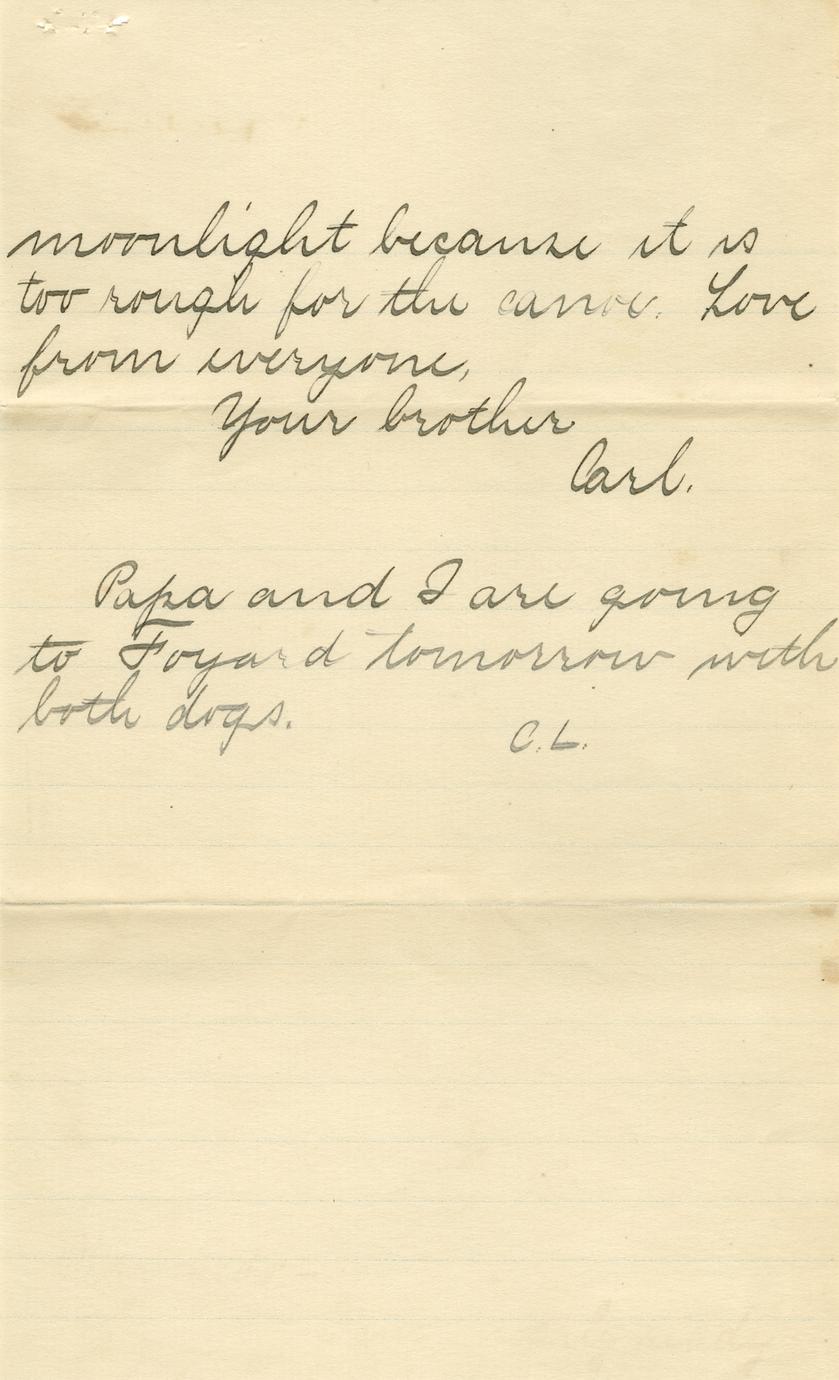 moonlight because it is
too rough for the canoe. Love
from everyone,
Your brother
Carl.
Papa and I are going
to Foyard tomorrow with
both dogs.
C.L.